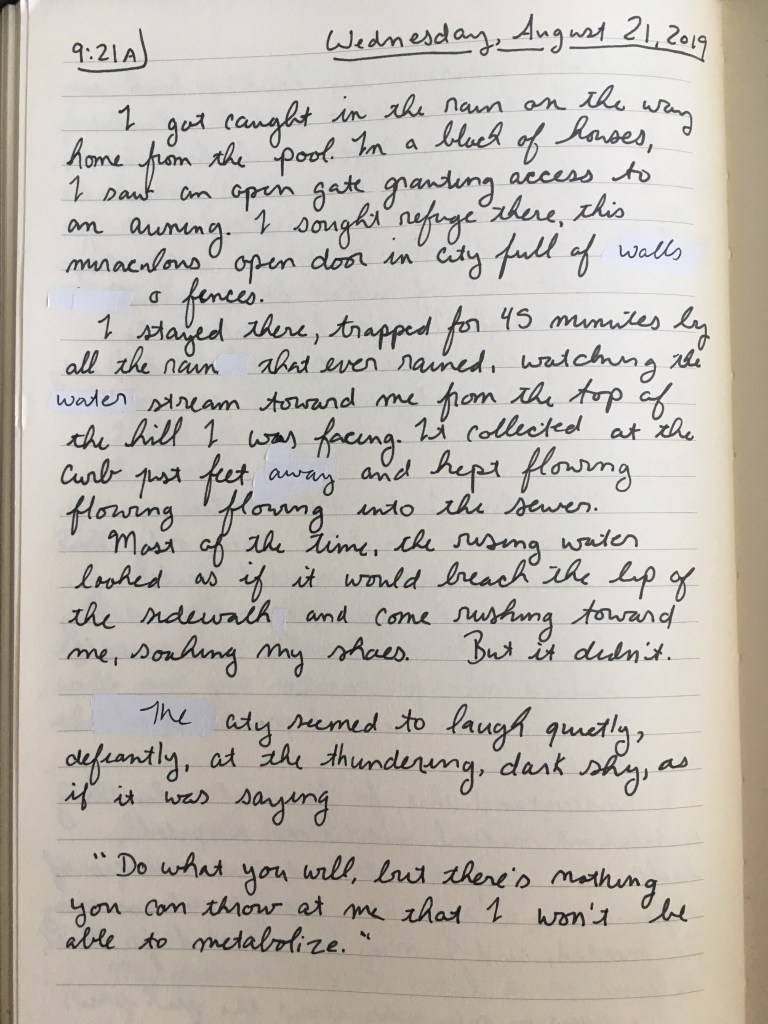 9:21A
Wednesday, August 21, 2019
I got caught in the rain on the way
home from the pool. In a block of houses,
I saw an open gate granting access to
an awning. I sought refuge there, this
miraculous open door in city full of walls
o fences.
I stayed there, trapped for 45 minutes by
all the rain that ever rained, watching the
water stream toward me from the top of
the hill I was facing. It collected at the
curb just feet away and kept flowing
flowing flowing into the sewer.
Most of the time, the rising water
looked as if it would breach the lip of
the sidewalk and come rushing toward
me, soaking my shoes. But it didn't.
The city seemed to laugh quietly,
defiantly, at the thundering, dark sky, as
if it was saying
"Do what you will, but there's nothing
you can throw at me that I won't be
able to metabolize."